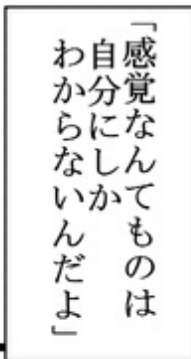 「感覚なんてものは
自分にしか
わからないんだよ」